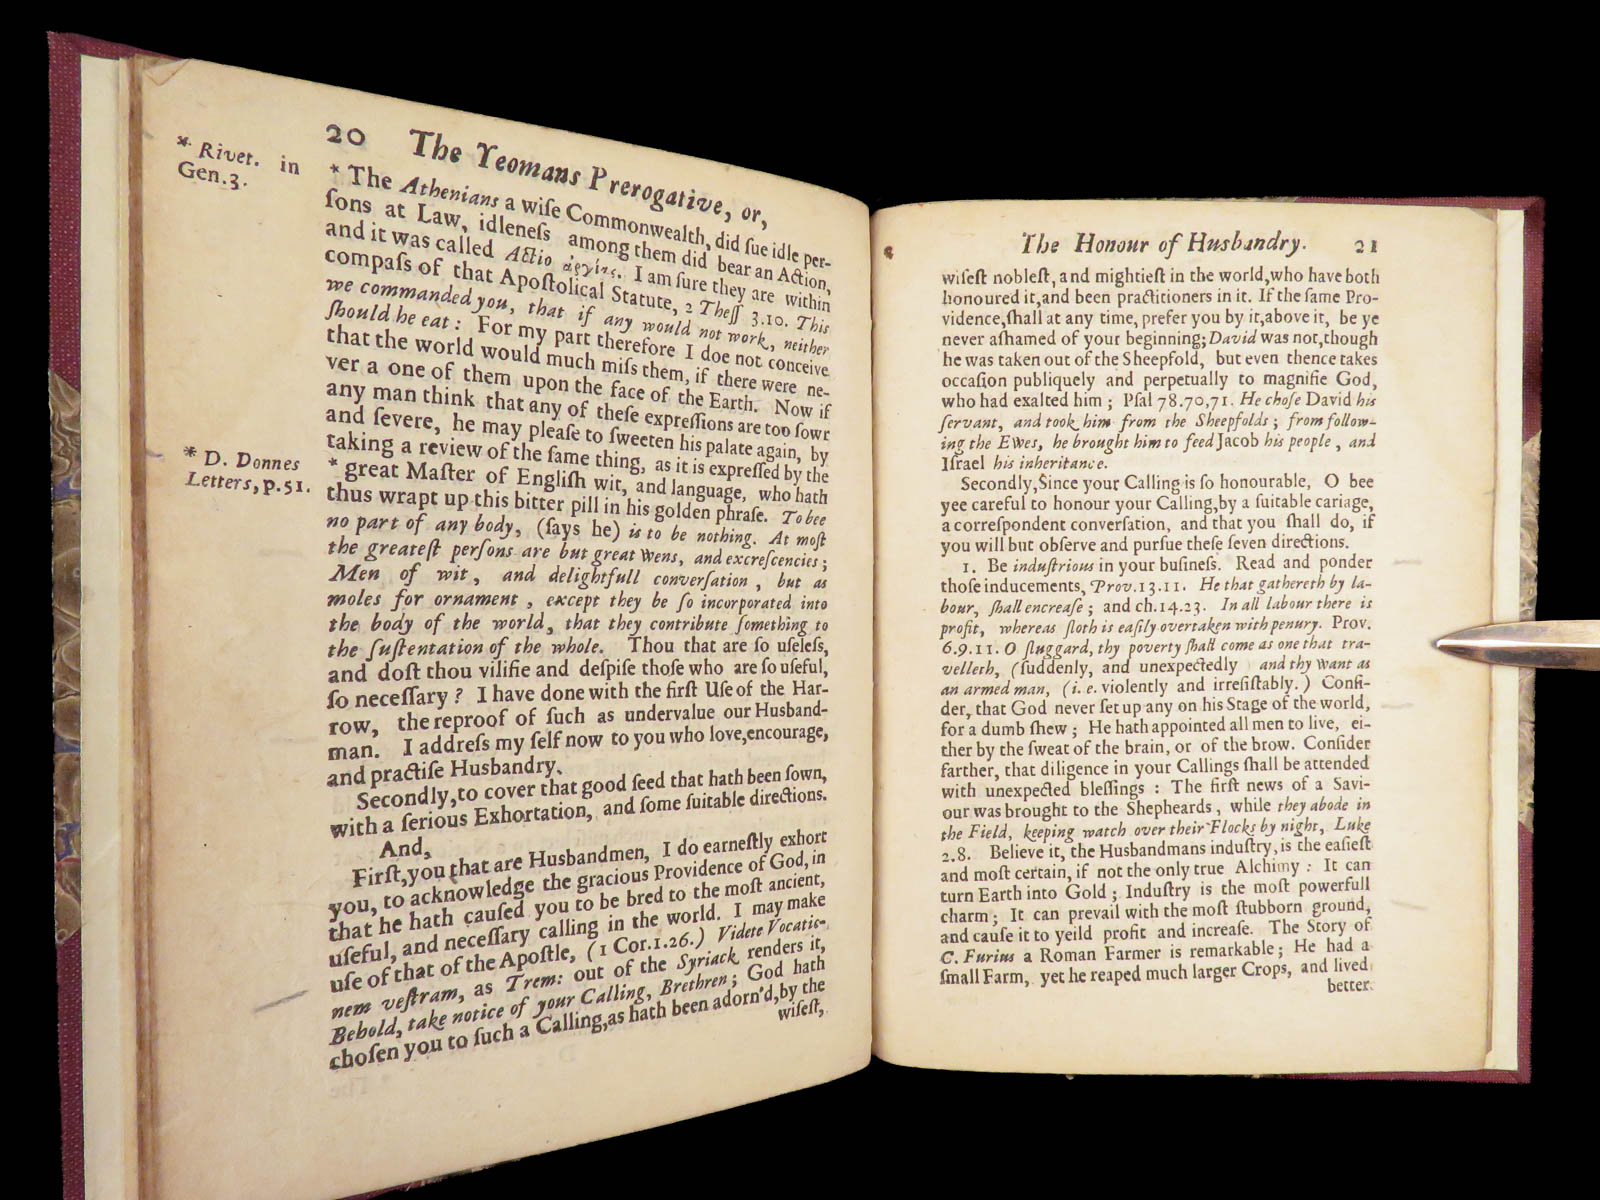 20 The Yeomans Prerogative, or,
* Rivet. in
Gen.3.
* The Athenians a wiſe Commonwealth, did ſue idle per-
ſons at Law, idleneſs among them did bear an Action,
and it was called Actio ἀργίας. I am ſure they are within
compaſs of that Apoſtolical Statute, 2 Theſſ 3.10. This
we commanded you, that if any would not work, neither
ſhould he eat: For my part therefore I doe not conceive
that the world would much miſs them, if there were ne-
ver a one of them upon the face of the Earth. Now if
any man think that any of theſe expreſſions are too ſowr
and ſevere, he may pleaſe to ſweeten his palate again, by
taking a review of the ſame thing, as it is expreſſed by the
* D. Donnes
Letters, p.51.
* great Maſter of Engliſh wit, and language, who hath
thus wrapt up this bitter pill in his golden phraſe. To bee
no part of any body, (ſays he) is to be nothing. At moſt
the greateſt perſons are but great Wens, and excreſcencies;
Men of wit, and delightfull converſation, but as
moles for ornament, except they be ſo incorporated into
the body of the world, that they contribute ſomething to
the ſuſtentation of the whole. Thou that are ſo uſeleſs,
and doſt thou vilifie and deſpiſe thoſe who are ſo uſeful,
ſo neceſſary? I have done with the firſt Uſe of the Har-
row, the reproof of ſuch as undervalue our Husband-
man. I addreſs my ſelf now to you who love, encourage,
and practiſe Husbandry.
Secondly, to cover that good ſeed that hath been ſown,
with a ſerious Exhortation, and ſome ſuitable directions.
And,
Firſt, you that are Husbandmen, I do earneſtly exhort
you, to acknowledge the gracious Providence of God, in
that he hath cauſed you to be bred to the moſt ancient,
uſeful, and neceſſary calling in the world. I may make
uſe of that of the Apoſtle, (1 Cor.1.26.) Videte Vocatio-
nem veſtram, as Trem: out of the Syriack renders it,
Behold, take notice of your Calling, Brethren; God hath
choſen you to ſuch a Calling, as hath been adorn'd, by the
wiſeſt,
The Honour of Husbandry. 21
wiſeſt nobleſt, and mightieſt in the world, who have both
honoured it, and been practitioners in it. If the ſame Pro-
vidence, ſhall at any time, prefer you by it, above it, be ye
never aſhamed of your beginning; David was not, though
he was taken out of the Sheepfold, but even thence takes
occaſion publiquely and perpetually to magnifie God,
who had exalted him; Pſal 78.70,71. He choſe David his
ſervant, and took him from the Sheepfolds; from follow-
ing the Ewes, he brought him to feed Jacob his people, and
Iſrael his inheritance.
Secondly, Since your Calling is ſo honourable, O bee
yee careful to honour your Calling, by a ſuitable cariage,
a correſpondent converſation, and that you ſhall do, if
you will but obſerve and purſue theſe ſeven directions.
1. Be induſtrious in your buſineſs. Read and ponder
thoſe inducements, Prov.13.11. He that gathereth by la-
bour, ſhall encreaſe; and ch.14.23. In all labour there is
profit, whereas ſloth is eaſily overtaken with penury. Prov.
6.9.11. O ſluggard, thy poverty ſhall come as one that tra-
velleth, (ſuddenly, and unexpectedly and thy want as
an armed man, (i. e. violently and irreſiſtably.) Conſi-
der, that God never ſet up any on his Stage of the world,
for a dumb ſhew; He hath appointed all men to live, ei-
ther by the ſweat of the brain, or of the brow. Conſider
farther, that diligence in your Callings ſhall be attended
with unexpected bleſſings: The firſt news of a Savi-
our was brought to the Shepheards, while they abode in
the Field, keeping watch over their Flocks by night, Luke
2.8. Believe it, the Husbandmans induſtry, is the eaſieſt
and moſt certain, if not the only true Alchimy: It can
turn Earth into Gold; Induſtry is the moſt powerfull
charm; It can prevail with the moſt ſtubborn ground,
and cauſe it to yeild profit and increaſe. The Story of
C. Furius a Roman Farmer is remarkable; He had a
ſmall Farm, yet he reaped much larger Crops, and lived
better.